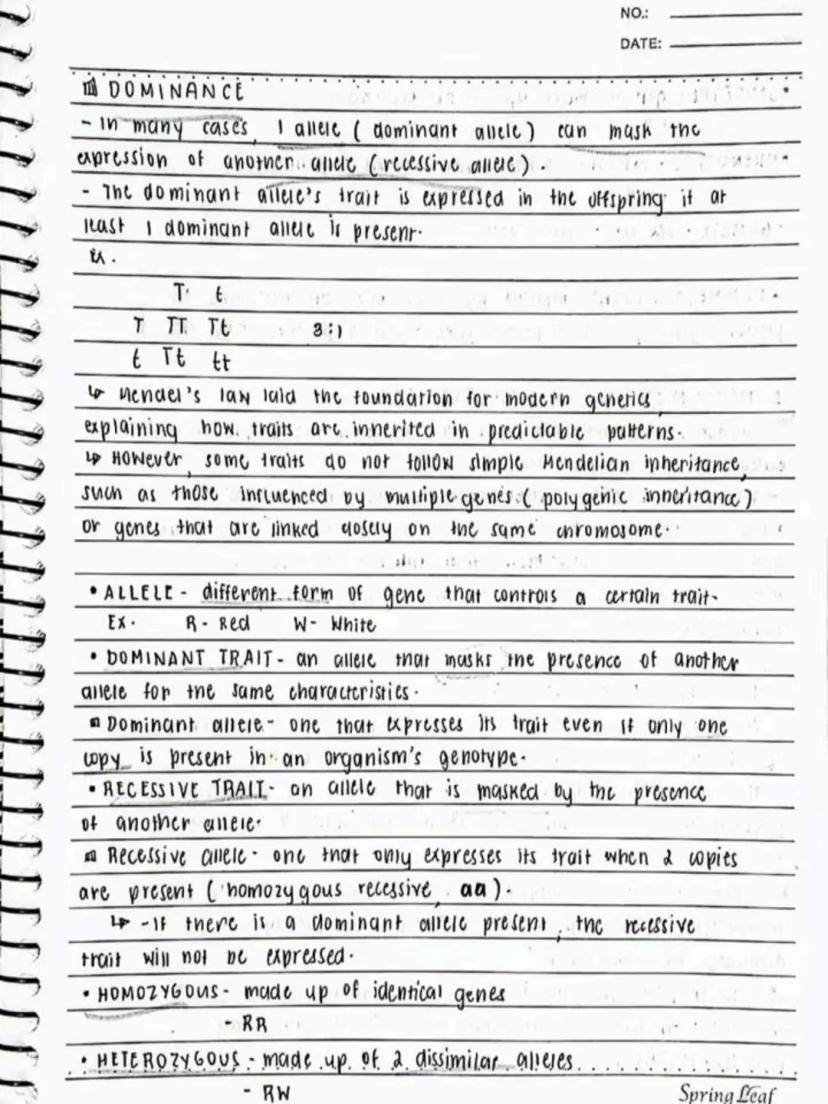 NO.:
DATE:
DOMINANCE
- In many cases, 1 allele (dominant allele) can mask the
expression of another allele (recessive allele).
- The dominant allele's trait is expressed in the offspring if at
least 1 dominant allele is present.
Ex.
T t
T TT Tt 3:1
t Tt tt
↳ Mendel's law laid the foundation for modern genetics,
explaining how traits are inherited in predictable patterns.
↳ However, some traits do not follow simple Mendelian inheritance,
such as those influenced by multiple genes (polygenic inheritance)
or genes that are linked closely on the same chromosome.
• ALLELE - different form of gene that controls a certain trait.
Ex. R - Red W - White
• DOMINANT TRAIT - an allele that masks the presence of another
allele for the same characteristics.
Dominant allele - one that expresses its trait even if only one
copy is present in an organism's genotype.
• RECESSIVE TRAIT - an allele that is masked by the presence
of another allele.
Recessive allele - one that only expresses its trait when 2 copies
are present (homozygous recessive, aa).
↳ - If there is a dominant allele present, the recessive
trait will not be expressed.
• HOMOZYGOUS - made up of identical genes
- RR
• HETEROZYGOUS - made up of 2 dissimilar alleles
- RW
Spring Leaf